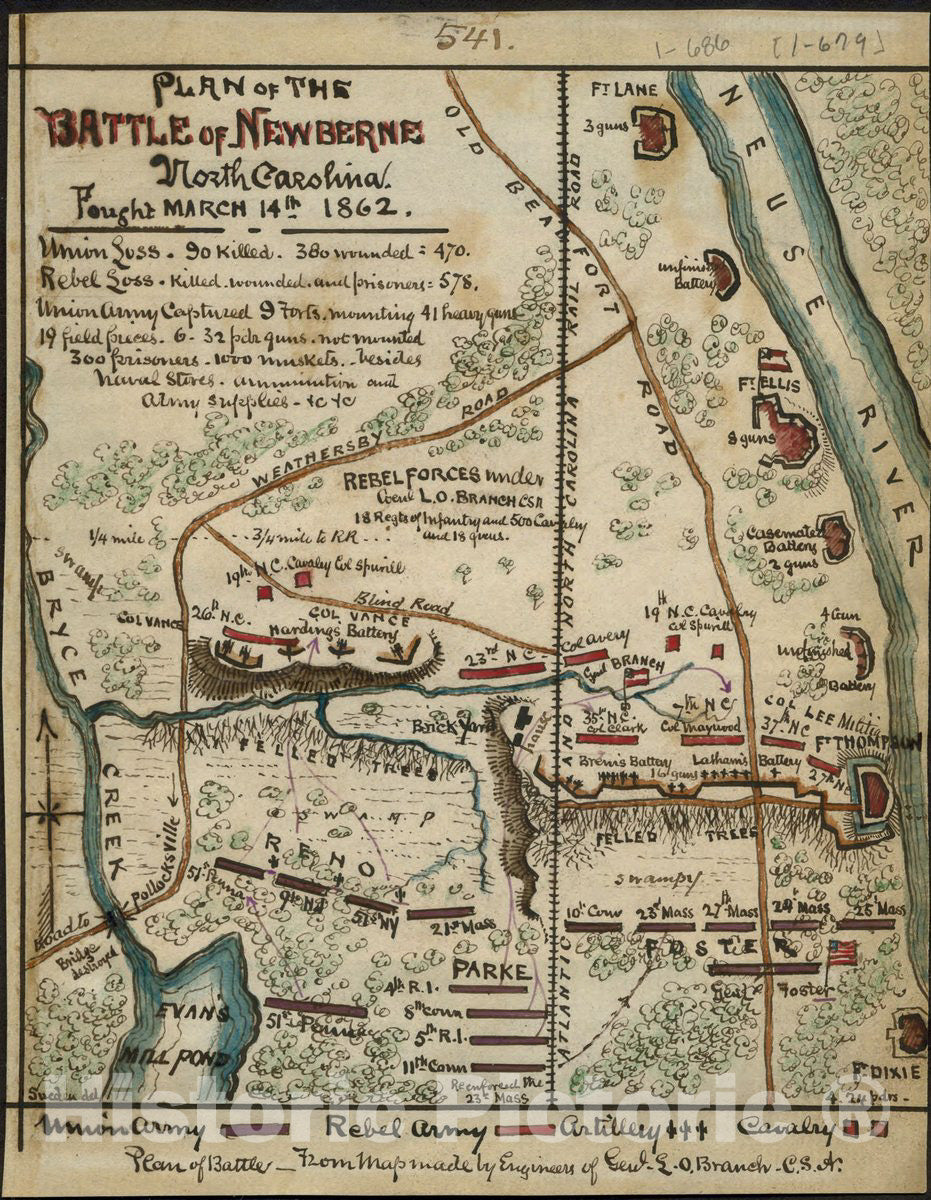 541.
1-686 [1-679]
PLAN OF THE
BATTLE OF NEWBERNE
North Carolina.
Fought MARCH 14th 1862.
Union Loss - 90 Killed. 380 wounded = 470.
Rebel Loss - Killed. wounded. and prisoners = 578.
Union Army Captured 9 Forts. mounting 41 heavy guns
19 field pieces. 6 - 32 pdr guns. not mounted
300 prisoners - 1000 muskets. besides
Naval Stores - ammunition and
Army supplies - &c &c
OLD BEAUFORT ROAD
ATLANTIC AND NORTH CAROLINA RAIL ROAD
FT LANE
3 guns
NEUSE RIVER
unfinish
Battery
FT ELLIS
8 guns
WEATHERSBY ROAD
REBEL FORCES under
Genl L.O. BRANCH CSA
18 Regts of Infantry and 500 Cavalry
and 18 guns.
Casemated
Battery
2 guns
1/4 mile
3/4 mile to RR
Swamp
BRYCE CREEK
19th N.C. Cavalry Col Spurill
Blind Road
COL VANCE
26th N.C.
COL. VANCE
Hardings Battery
23rd N C
Col Avery
19th N.C. Cavalry
Col Spurill
4 Gun
unfinished
Battery
Genl BRANCH
Brick Yard
house
35th NC.
Col Clark
7th N C
Col Maywood
COL LEE
37th NC
FT THOMPSON
27th NC
Brems Battery
16 guns
Lathams Battery
FELLED TREES
FELLED TREES
SWAMP
swampy
Pollocksville
RENO
51st Penna
9th NJ
51st NY
21st Mass
10th Conn
23rd Mass
27th Mass
24th Mass
25th Mass
FOSTER
Genl Foster
Road to
Bridge
destroyed
PARKE
4th R.I.
8th Conn
5th R.I.
11th Conn
Reenforced the
23rd Mass
51st Penna
EVAN'S
MILL POND
FT DIXIE
4. 24 pdrs.
Sneden del
Historic Pictoric ©
Union Army Rebel Army Artillery Cavalry
Plan of Battle - From Map made by Engineers of Genl L.O. Branch - C.S.A.